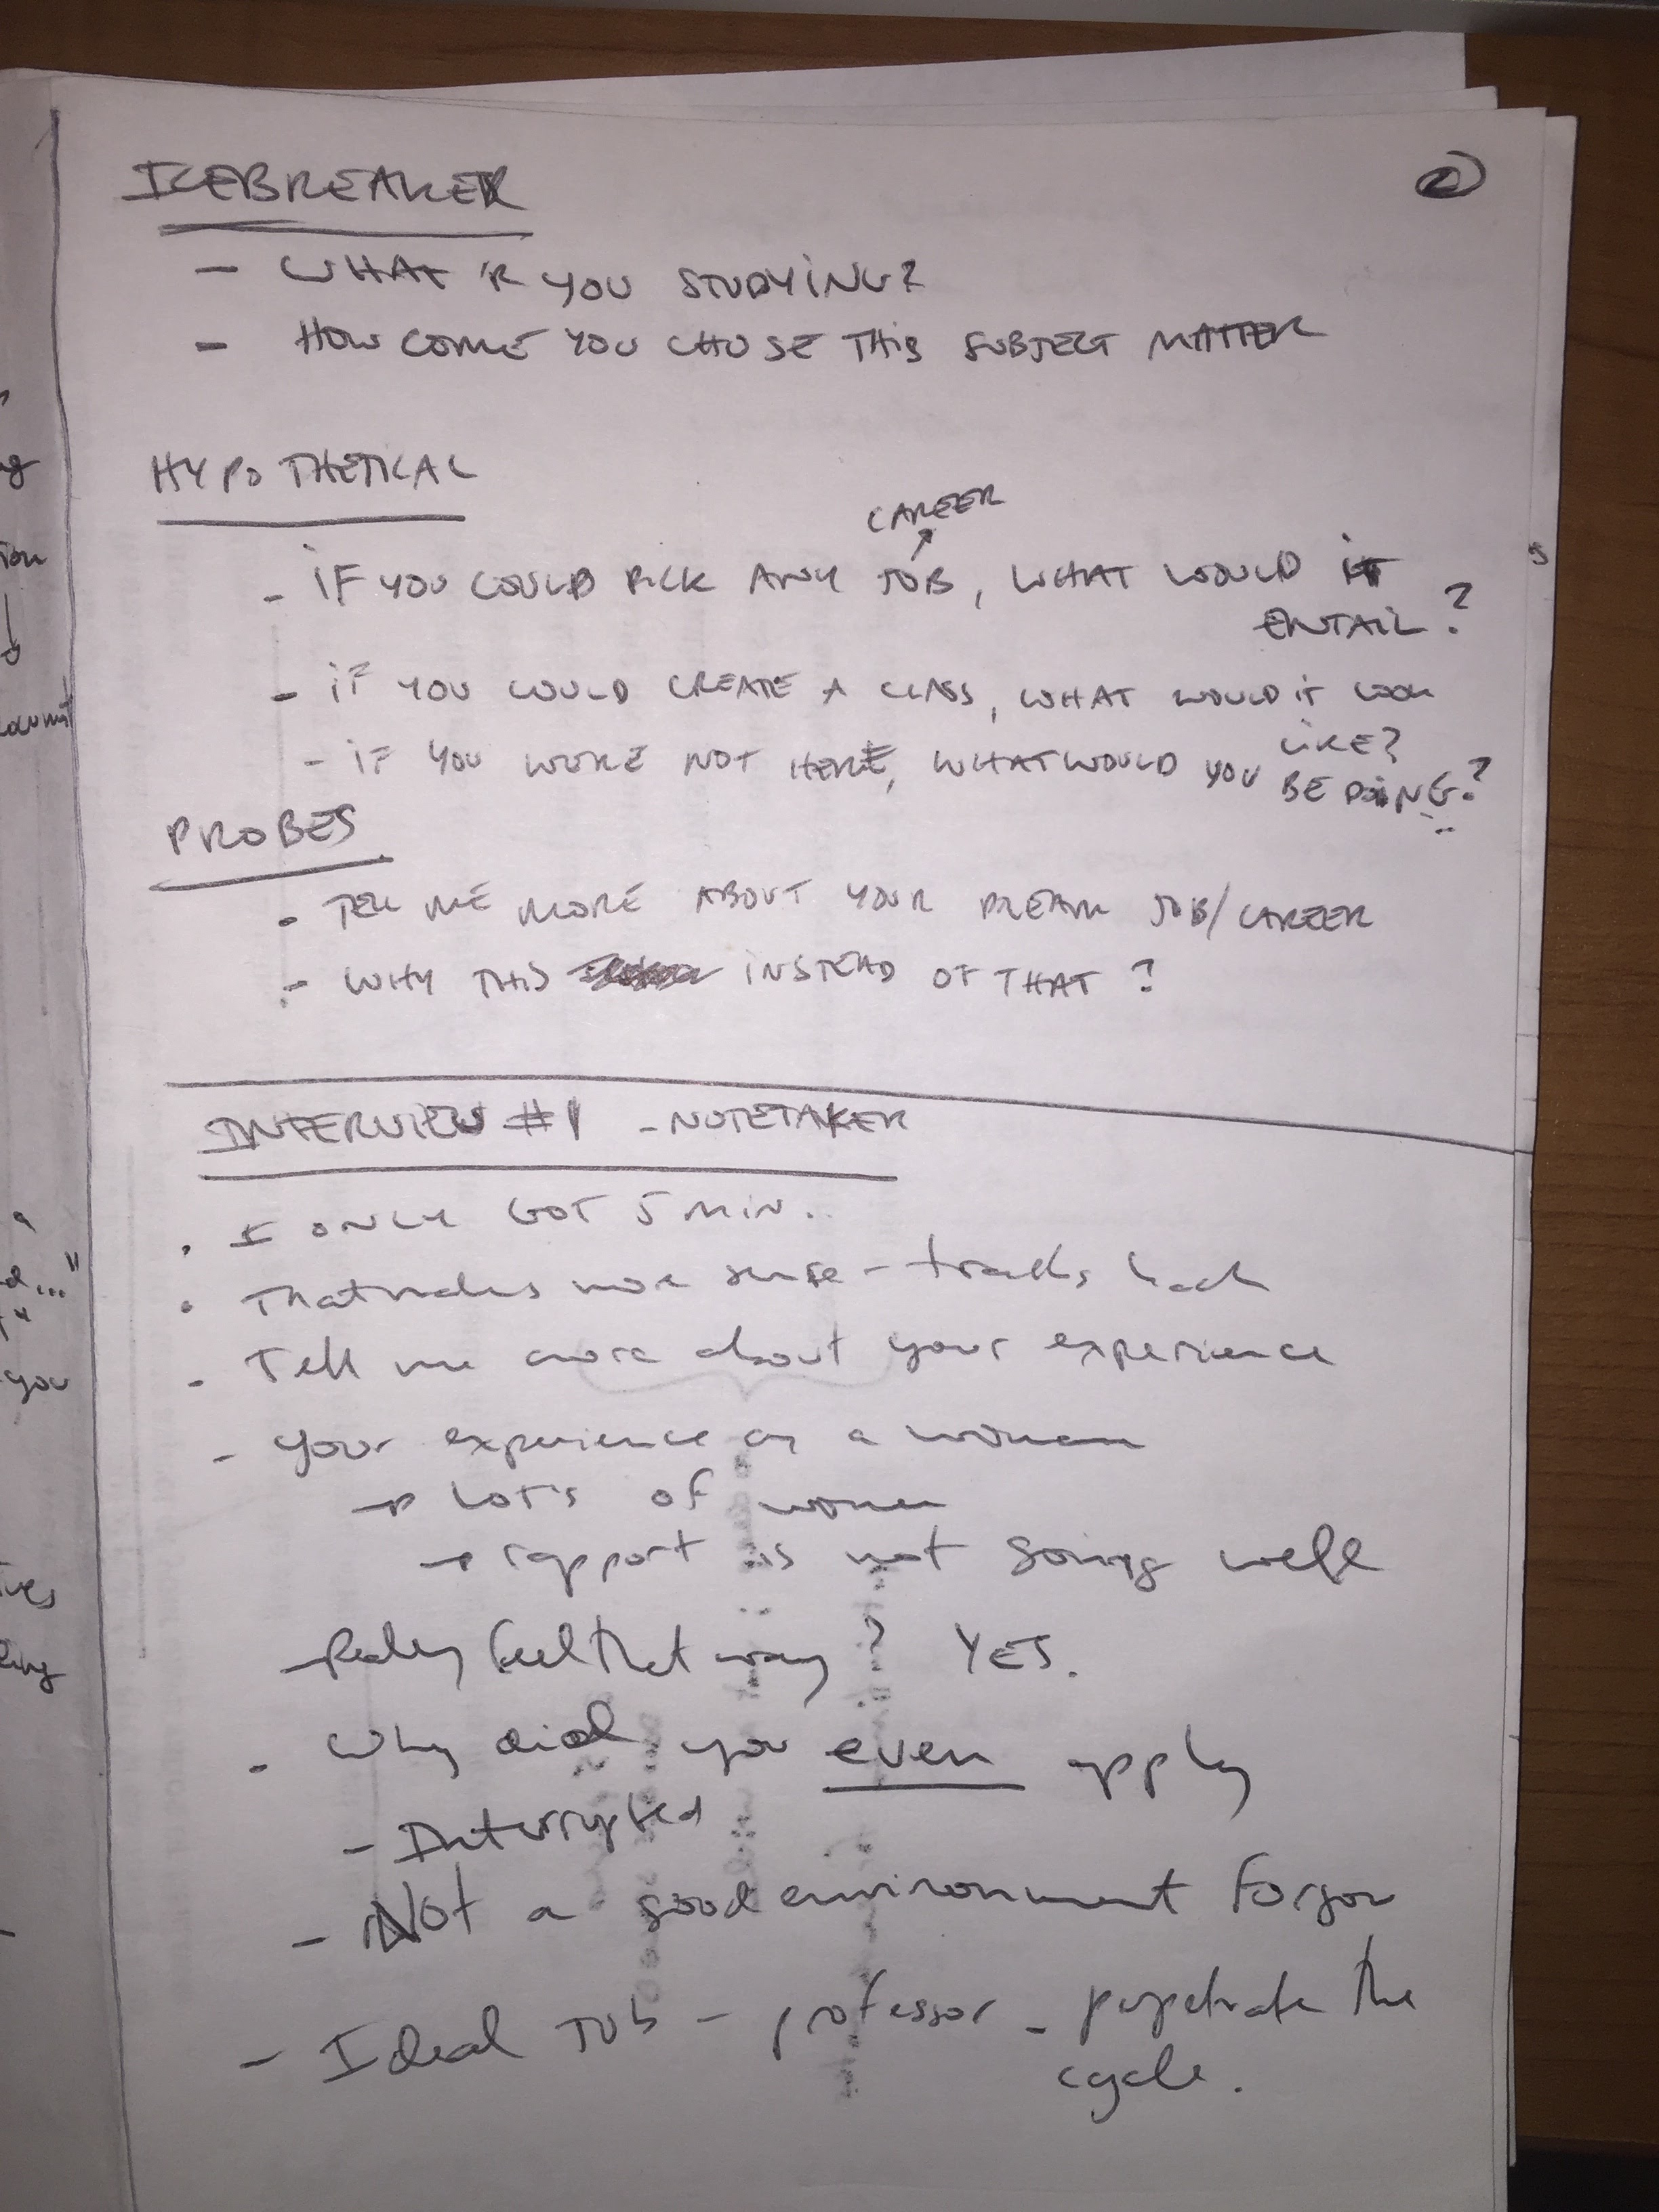 ②
ICEBREAKER
- WHAT 'R YOU STUDYING?
- HOW COME YOU CHOSE THIS SUBJECT MATTER
HYPOTHETICAL
CAREER
- IF YOU COULD PICK ANY JOB, WHAT WOULD IT
ENTAIL?
- IF YOU COULD CREATE A CLASS, WHAT WOULD IT LOOK
LIKE?
- IF YOU WERE NOT HERE, WHAT WOULD YOU
BE DOING?
PROBES
- TELL ME MORE ABOUT YOUR DREAM JOB/CAREER
- WHY THIS INSTEAD OF THAT?
INTERVIEW #1 - NOTETAKER
• I ONLY GOT 5 MIN.
• That makes more sense - tracks back
- Tell me more about your experience
- your experience as a woman
→ Lot's of women
→ rapport is not going well
- Really feel that way? YES.
• Why did you even apply
- Interrupted
- Not a good environment for you
- Ideal Job - professor - perpetrate the
cycle.
ion
you